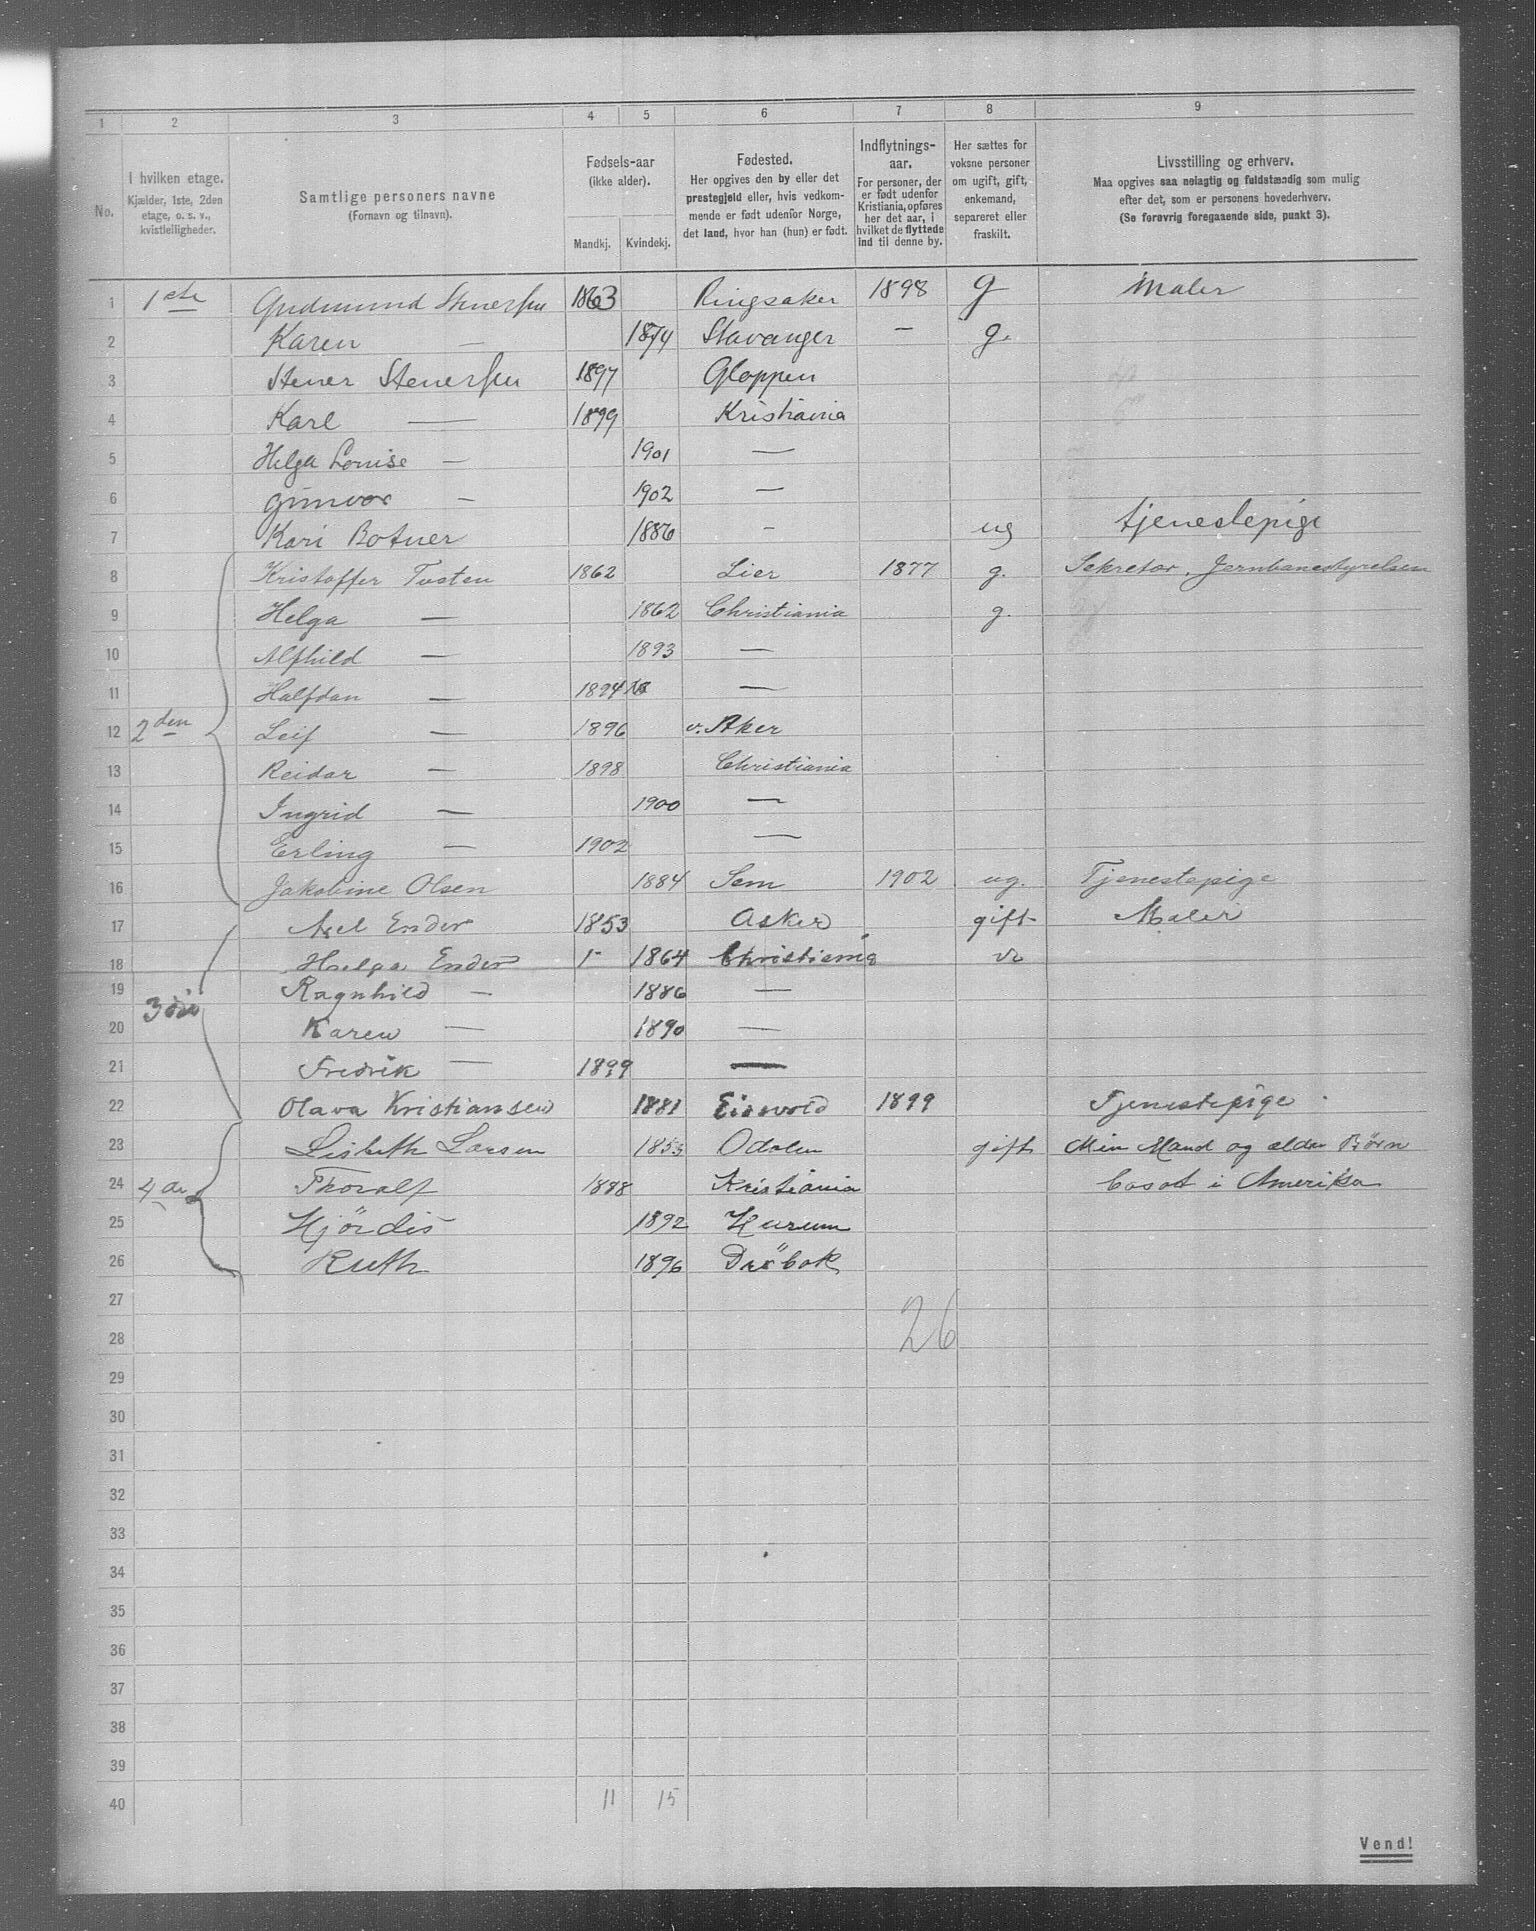 1 2 3 4 5 6 7 8 9
No.
I hvilken etage.
Kjælder, 1ste, 2den
etage, o. s. v.,
kvistleiligheder.
Samtlige personers navne
(Fornavn og tilnavn).
Fødsels-aar
(ikke alder).
Mandkj. Kvindekj.
Fødested.
Her opgives den by eller det
prestegjeld eller, hvis vedkom-
mende er født udenfor Norge,
det land, hvor han (hun) er født.
Indflytnings-
aar.
For personer, der
er født udenfor
Kristiania, opføres
her det aar, i
hvilket de flyttede
ind til denne by.
Her sættes for
voksne personer
om ugift, gift,
enkemand,
separeret eller
fraskilt.
Livsstilling og erhverv.
Maa opgives saa nøiagtig og fuldstændig som mulig
efter det, som er personens hovederhverv.
(Se forøvrig foregaaende side, punkt 3).
1 1ste Gudmund Stenersen 1863 Ringsaker 1898 g Maler
2 Karen — 1874 Stavanger — g.
3 Stener Stenersen 1897 Gloppen
4 Karl — 1899 Kristiania
5 Helga Louise — 1901 —
6 Gunvor — 1902 —
7 Kari Botner 1886 - ug tjenestepige
8 Kristoffer Tosten 1862 Lier 1877 g. Sekretær, Jernbanestyrelsen
9 Helga — 1862 Christiania g.
10 Alfhild — 1893 —
11 Halfdan — 1894 —
12 2den Leif — 1896 v. Aker
13 Reidar — 1898 Christiania
14 Ingrid — 1900 —
15 Erling — 1902 —
16 Jakobine Olsen 1884 Sem 1902 ug. Tjenestepige
17 Axel Ender 1853 Asker gift Maler
18 Helga Ender 1864 Christiania
19 3die Ragnhild — 1886 —
20 Karen — 1890 —
21 Fredrik — 1899 —
22 Olava Kristiansen 1881 Eidsvold 1899 Tjenestepige
23 Lisbeth Larsen 1853 Odalen gift Min Mand og ældre Børn
24 4de Thoralf 1888 Kristiania bosat i Amerika
25 Hjördis 1892 Hurum
26 Ruth 1896 Dröbak
27
26
28
29
30
31
32
33
34
35
36
37
38
39
40 11 15
Vend!